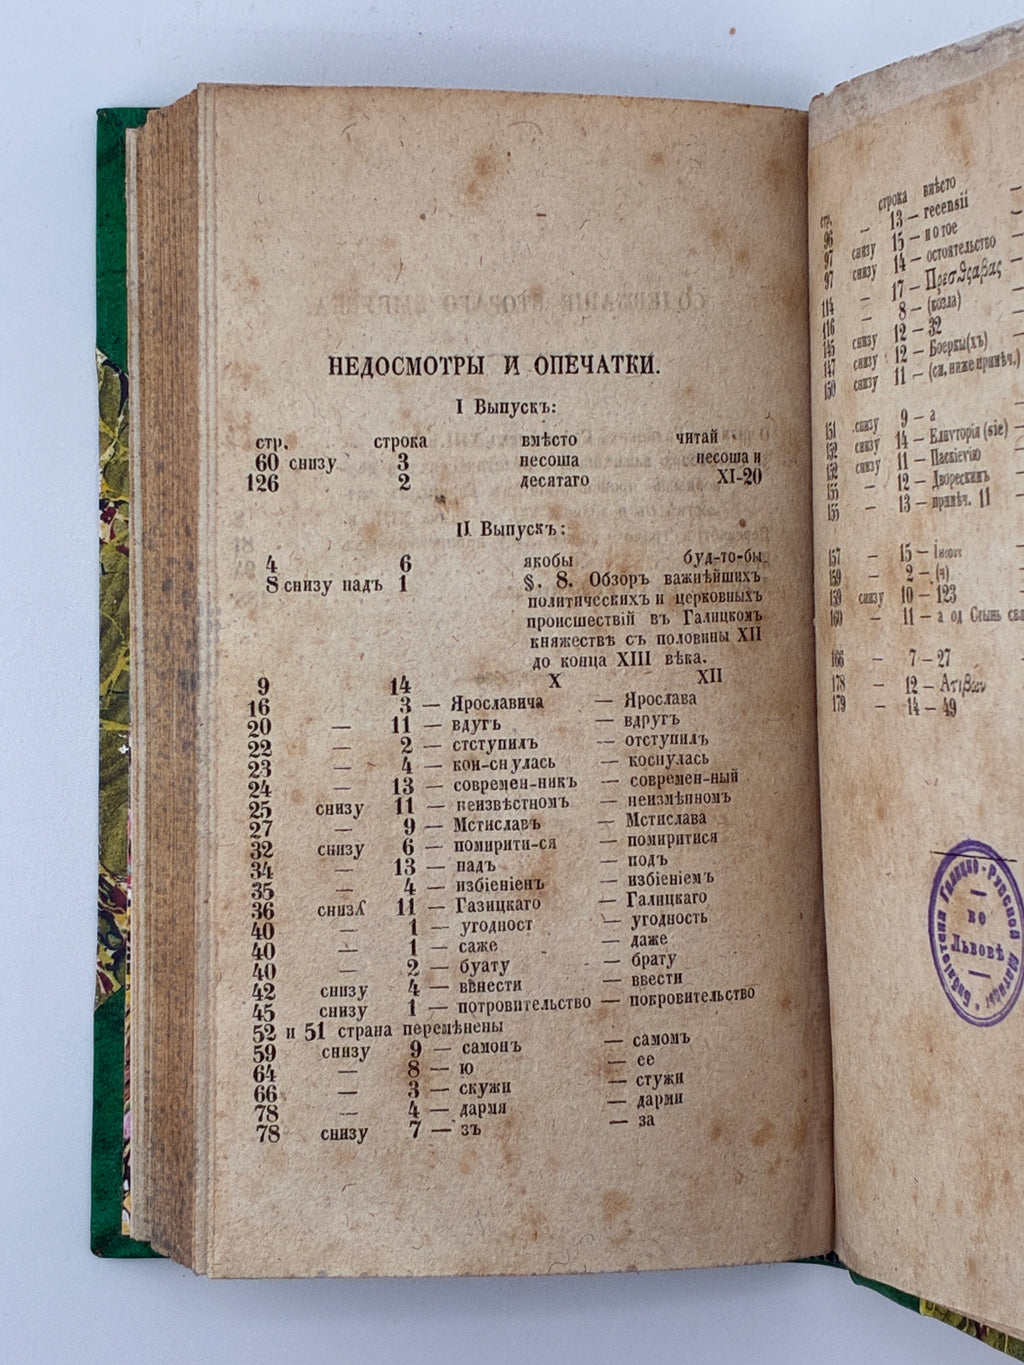 НЕДОСМОТРЫ И ОПЕЧАТКИ.
I Выпускъ:
стр. строка вмѣсто читай
60 снизу 3 несоша песоша и
126 2 десятаго XI-20
II Выпускъ:
4 6 якобы буд-то-бы
8 снизу надъ 1 §. 8. Обзоръ важнѣйшихъ
политическихъ и церковныхъ
происшествій въ Галицкомъ
княжествѣ съ половины XII
до конца XIII вѣка.
9 14 X XII
16 3 — Ярославича — Ярослава
20 — 11 — вдугъ — вдругъ
22 — 2 — стступилъ — отступилъ
23 — 4 — кои-снулась — коснулась
24 — 13 — современ-никъ — современ-ный
25 снизу 11 — неизвѣстномъ — неизмѣнномъ
27 — 9 — Мстиславъ — Мстислава
32 снизу 6 — помирити-ся — помиритися
34 — 13 — надъ — подъ
35 — 4 — избіеніенъ — избіеніемъ
36 снизу 11 — Газицкаго — Галицкаго
40 — 1 — угодност — угодность
40 — 1 — саже — даже
40 — 2 — буату — брату
42 снизу 4 — внести — ввести
45 снизу 1 — потровительство — покровительство
52 и 51 страна перемѣнены
59 снизу 9 — самонъ — самомъ
64 — 8 — ю — ее
66 — 3 — скужи — стужи
78 — 4 — дармя — дарми
78 снизу 7 — зъ — за
стр. строка вмѣсто
96 — 13 — recensii —
97 снизу 15 — и о тое —
97 снизу 14 — остоятельство —
114 — 17 —
116 — 8 — (козла) —
145 снизу 12 — 32 —
147 снизу 12 — Боеркы(хъ) —
150 снизу 11 — (см. ниже примѣч.) —
151 снизу 9 — а —
152 снизу 14 — Евпуторія (sie) —
152 снизу 11 — Паскіевію
155 — 12 — Дворескинъ —
155 — 13 — примѣч. 11 —
157 — 15 —
159 — 2 — (ч) —
159 снизу 10 — 123 —
160 — 11 — а од Стынь сва
166 — 7 — 27 —
178 — 12 —
179 — 14 — 49 —
Библіотеки Галицко-Русской Матицы
во
Львовѣ